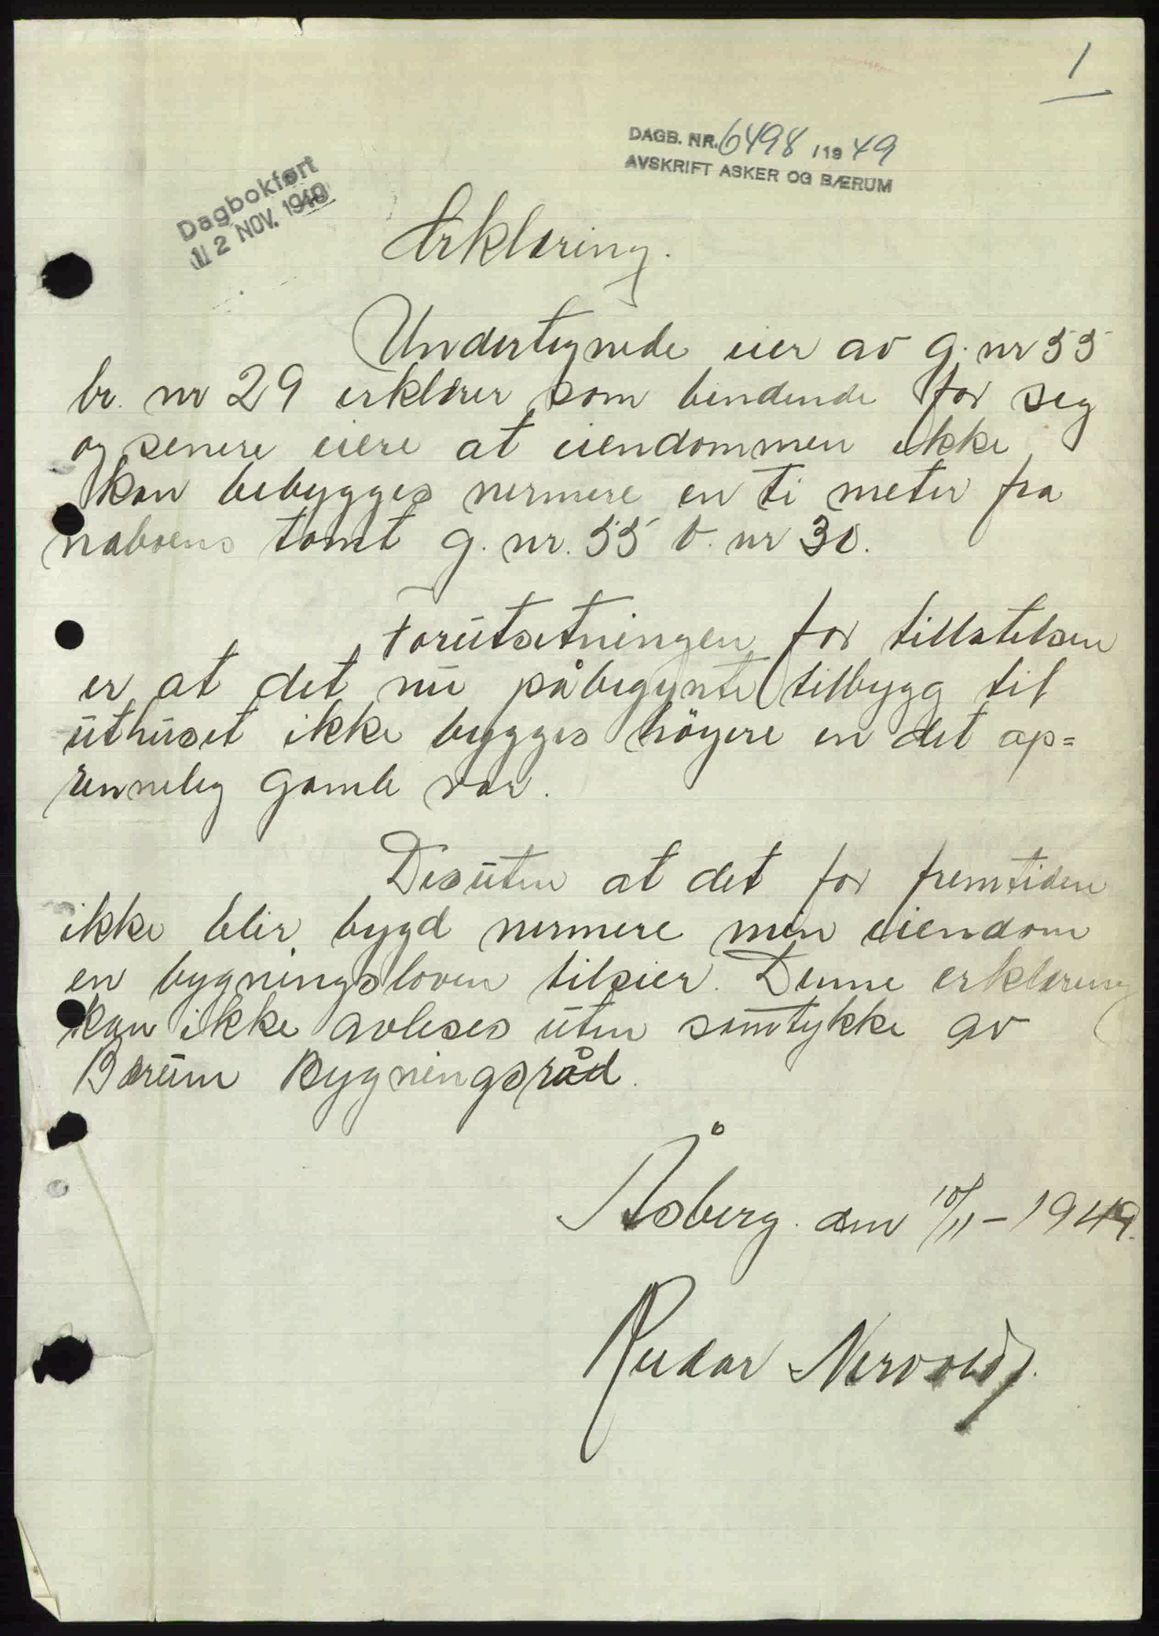 1
DAGB. NR. 6498 / 19 49
AVSKRIFT ASKER OG BÆRUM
Dagbokført
12 NOV. 1949
Erklæring.
Undertegnede eier av g. nr 55
br. nr 29 erklærer som bindende for seg
og senere eiere at eiendommen ikke
kan bebygges nermere en ti meter fra
naboens tomt g. nr. 55 b. nr 30.
Forutsetningen for tillatelsen
er at det nu påbegynte tilbygg til
uthuset ikke bygges höyere en det op=
rennelig gamle var.
Desuten at det for fremtiden
ikke blir bygd nermere min eiendom
en bygningsloven tilsier. Denne erklæring
kan ikke avleses uten samtykke av
Bærum Bygningsråd.
Åsberg den 10/11 - 1949.
Reidar Nervold